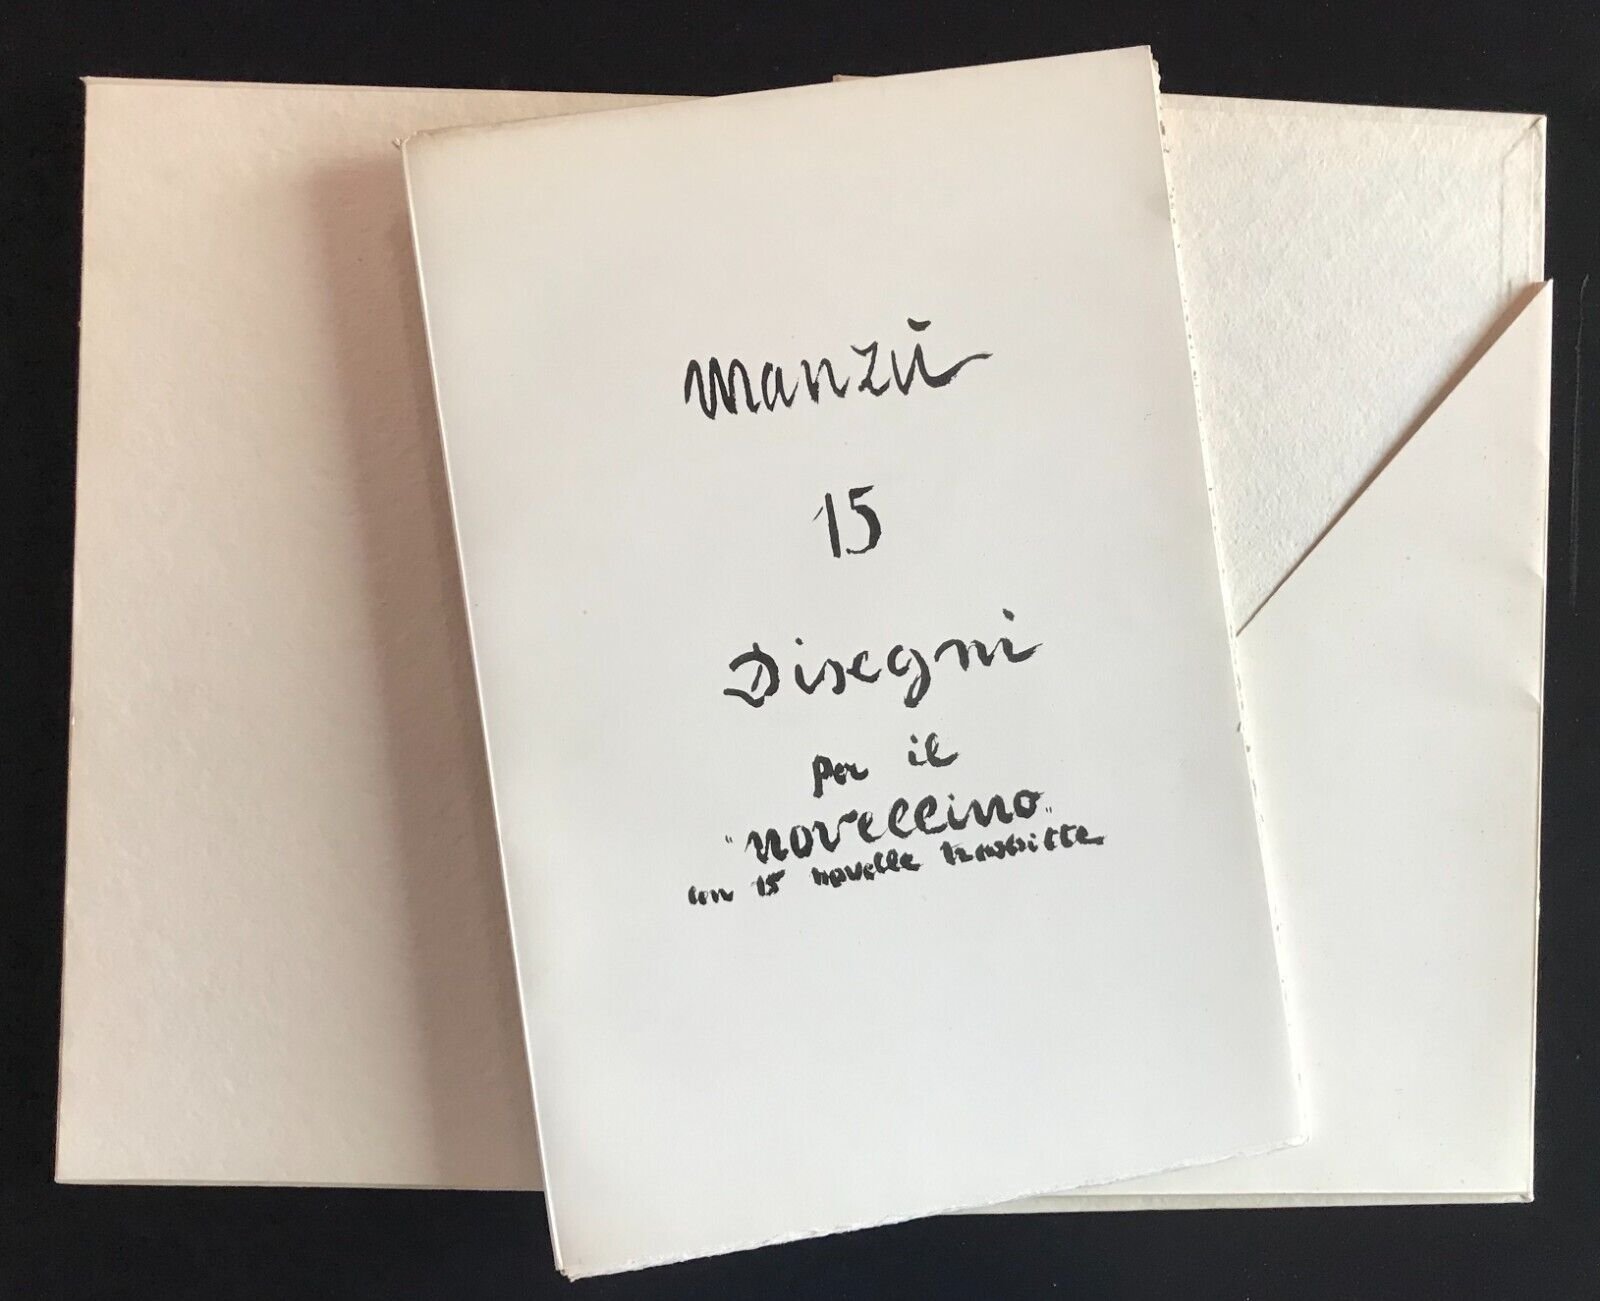 Manzù
15
Disegni
per il
"novellino"
con 15 novelle trascritte